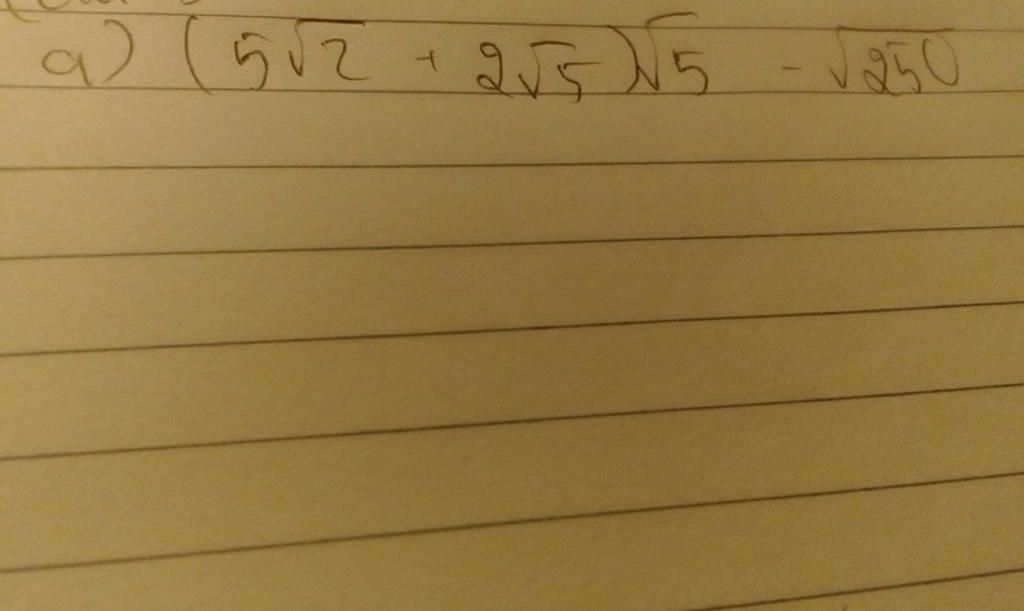 a) (5√2 + 2√5)√5 - √250